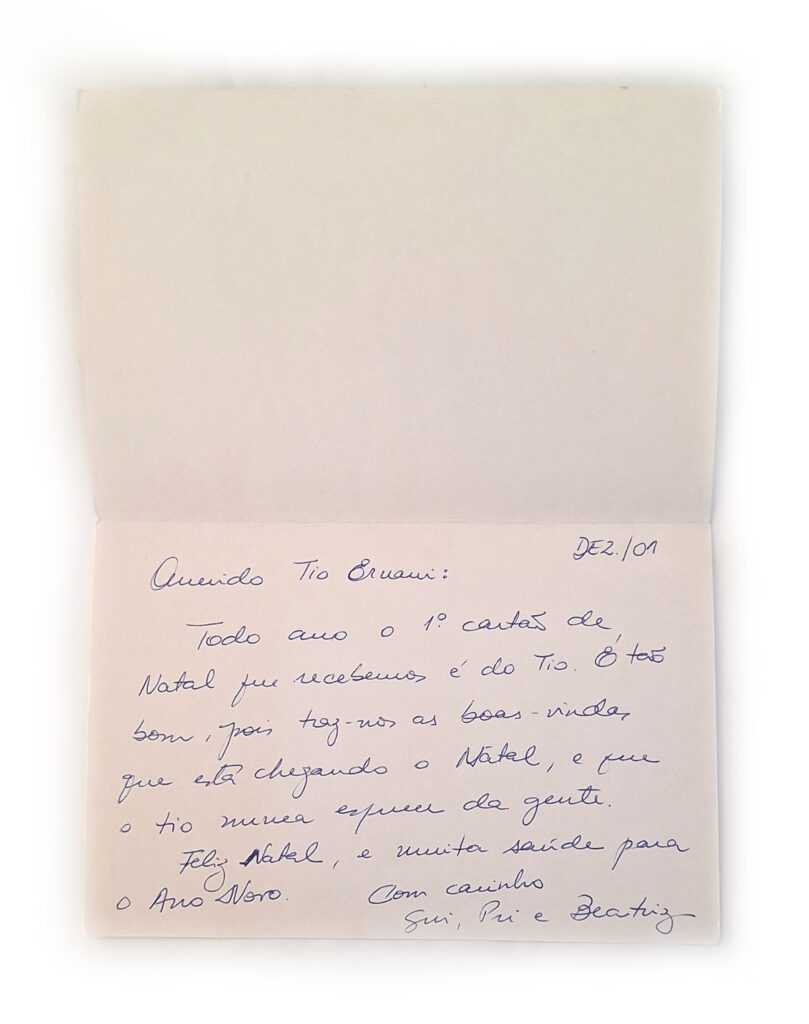 DEZ./01
Querido Tio Ernani:
Todo ano o 1º cartão de
Natal que recebemos é do Tio. É tão
bom, pois traz-nos as boas-vindas
que está chegando o Natal, e que
o tio nunca esquece da gente.
Feliz Natal, e muita saúde para
o Ano Novo. Com carinho
Gui, Pri e Beatriz